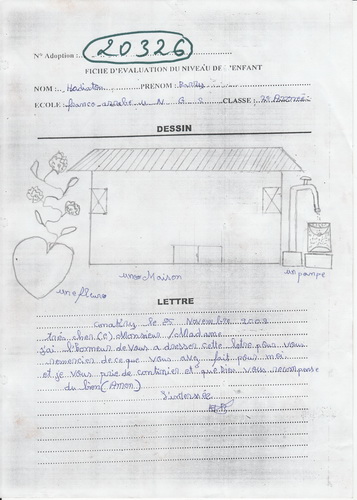 N° Adoption : 20326
FICHE D'EVALUATION DU NIVEAU DE L'ENFANT
NOM : Hadiatou PRENOM : Barry
ECOLE : franco-arabe CLASSE :
DESSIN
une Maison
un pompe
une fleur
LETTRE
conakry le 25 Novembre 2002
très cher(e) Monsieur /Madame
j'ai l'honneur de vous a dresser cette lettre pour vous
remercier de ce que vous avez fait pour moi
et je vous prie de continier et que Dieu vous recompense
du bien (Amen)
L'interessée